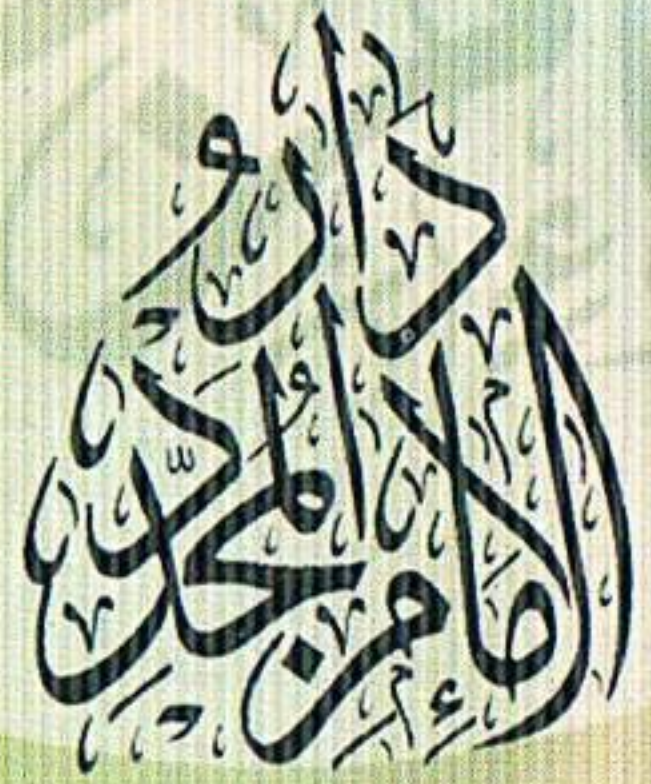 دَارُ
الإِمَامِ المُجَدِّدِ